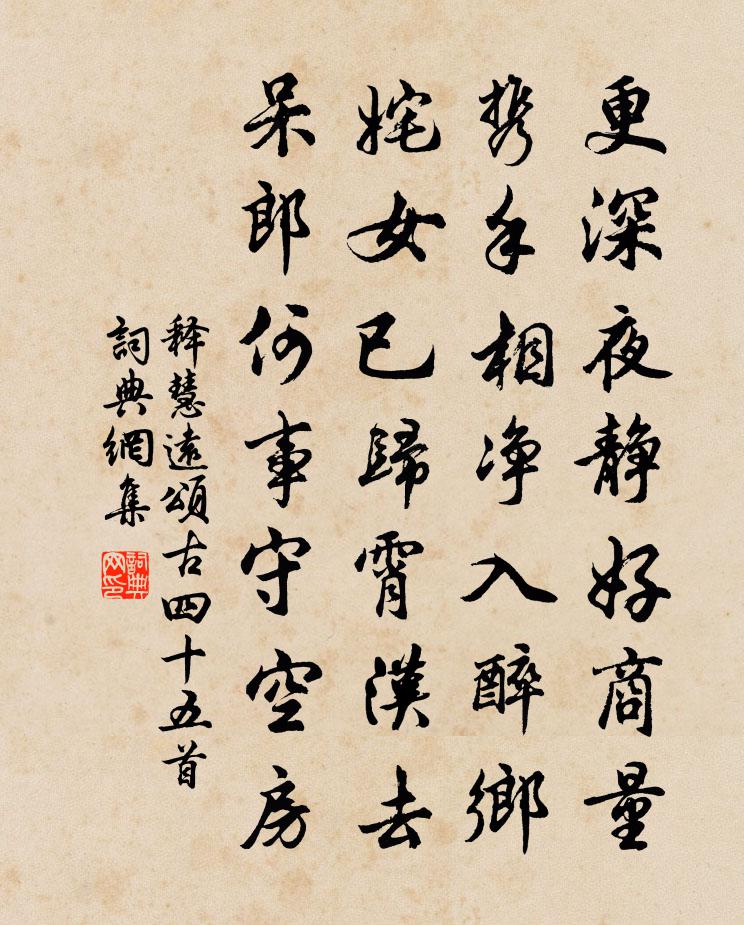 更深夜静好商量
携手相净入醉鄉
姹女已歸霄漢去
呆郎何事守空房
释慧遠頌古四十五首
詞典網集
詞典網印